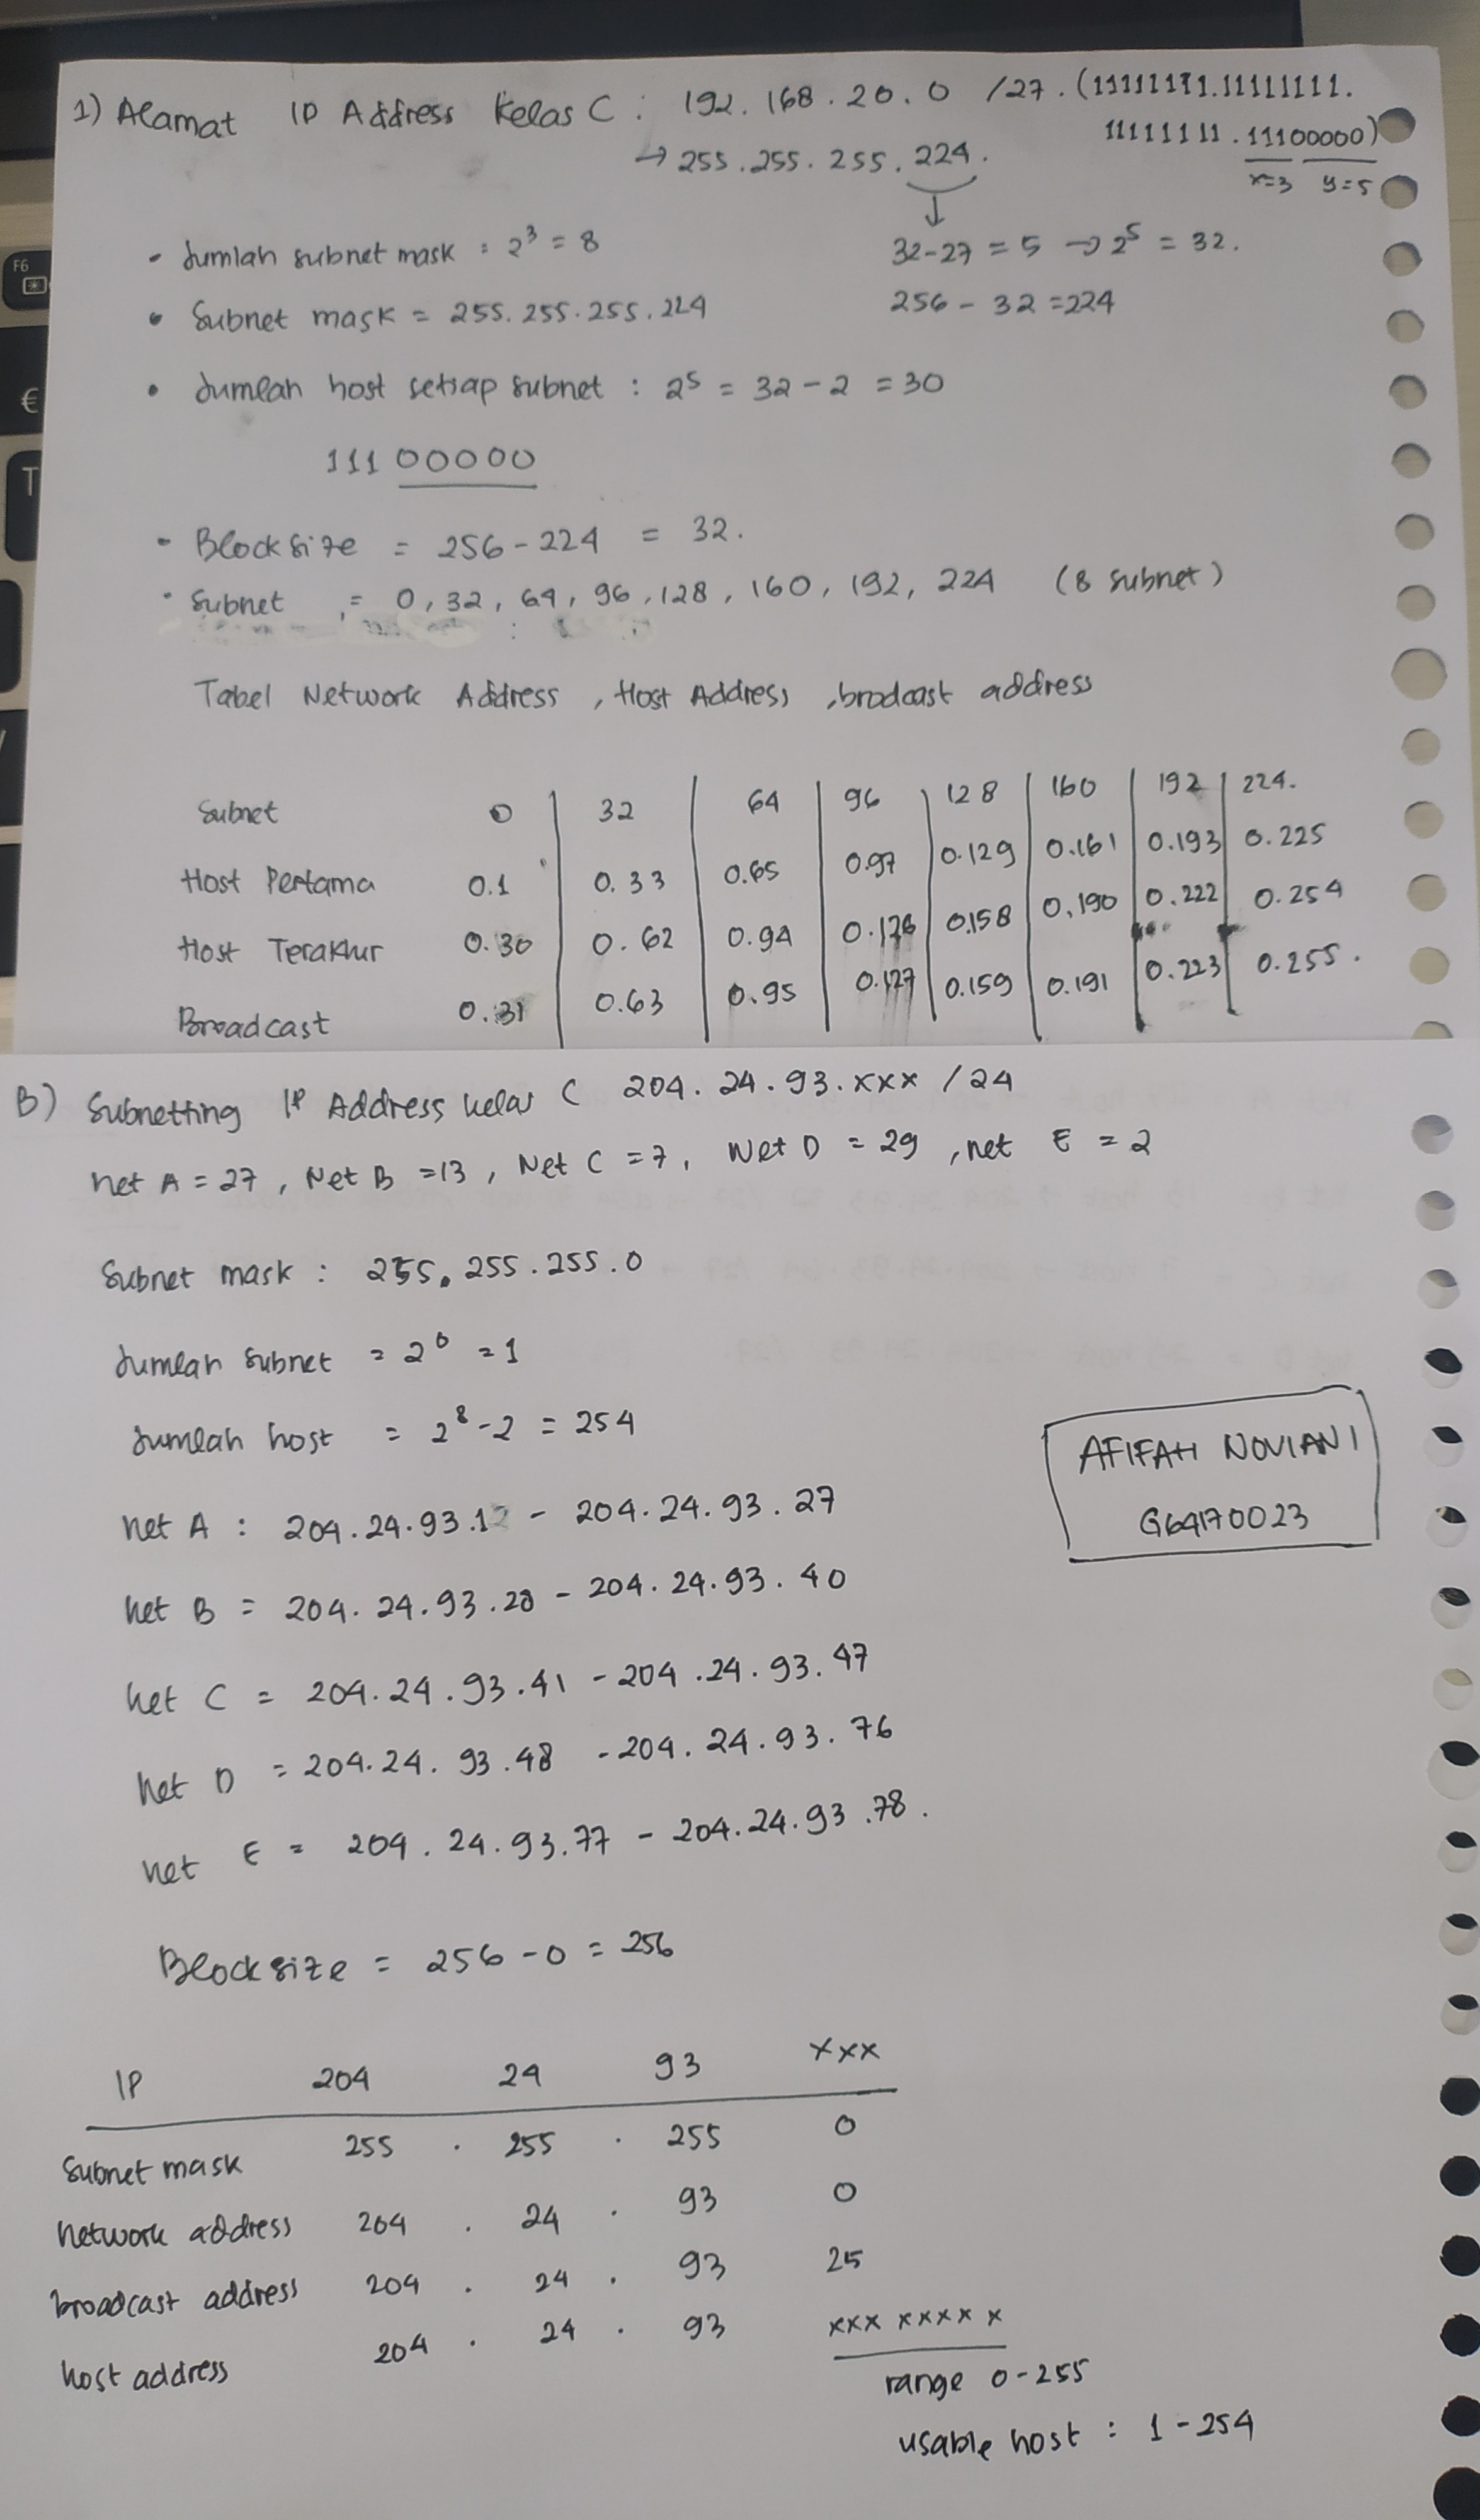 1) Alamat IP Address Kelas C : 192.168.20.0 /27. (11111111.11111111.
11111111.11100000)
→ 255.255.255.224.
x=3 y=5
• Jumlah subnet mask : 2³ = 8
32-27 = 5 → 2⁵ = 32.
• Subnet mask = 255.255.255.224
256 - 32 = 224
• Jumlah host setiap subnet : 2⁵ = 32 - 2 = 30
11100000
• Blocksize = 256 - 224 = 32.
• Subnet = 0, 32, 64, 96, 128, 160, 192, 224 (8 subnet)
Tabel Network Address, Host Address, brodcast address
Subnet 0 32 64 96 128 160 192 224.
Host Pertama 0.1 0.33 0.65 0.97 0.129 0.161 0.193 0.225
Host Terakhir 0.30 0.62 0.94 0.126 0.158 0.190 0.222 0.254
Broadcast 0.31 0.63 0.95 0.127 0.159 0.191 0.223 0.255.
B) Subnetting IP Address kelas C 204.24.93.xxx /24
net A = 27, Net B = 13, Net C = 7, Net D = 29, net E = 2
Subnet mask : 255.255.255.0
Jumlah subnet = 2⁰ = 1
Jumlah host = 2⁸ - 2 = 254
AFIFAH NOVIANI
G64170023
net A : - 204.24.93.27
net B = 204.24.93.28 - 204.24.93.40
net C = 204.24.93.41 - 204.24.93.47
net D = 204.24.93.48 - 204.24.93.76
net E = 204.24.93.77 - 204.24.93.78.
Blocksize = 256 - 0 = 256
IP 204 24 93 xxx
Subnet mask 255 . 255 . 255 0
network address 204 . 24 . 93 0
broadcast address 204 . 24 . 93 25
host address 204 . 24 . 93 xxx xxxx x
range 0-255
usable host : 1 - 254
F6
€
T